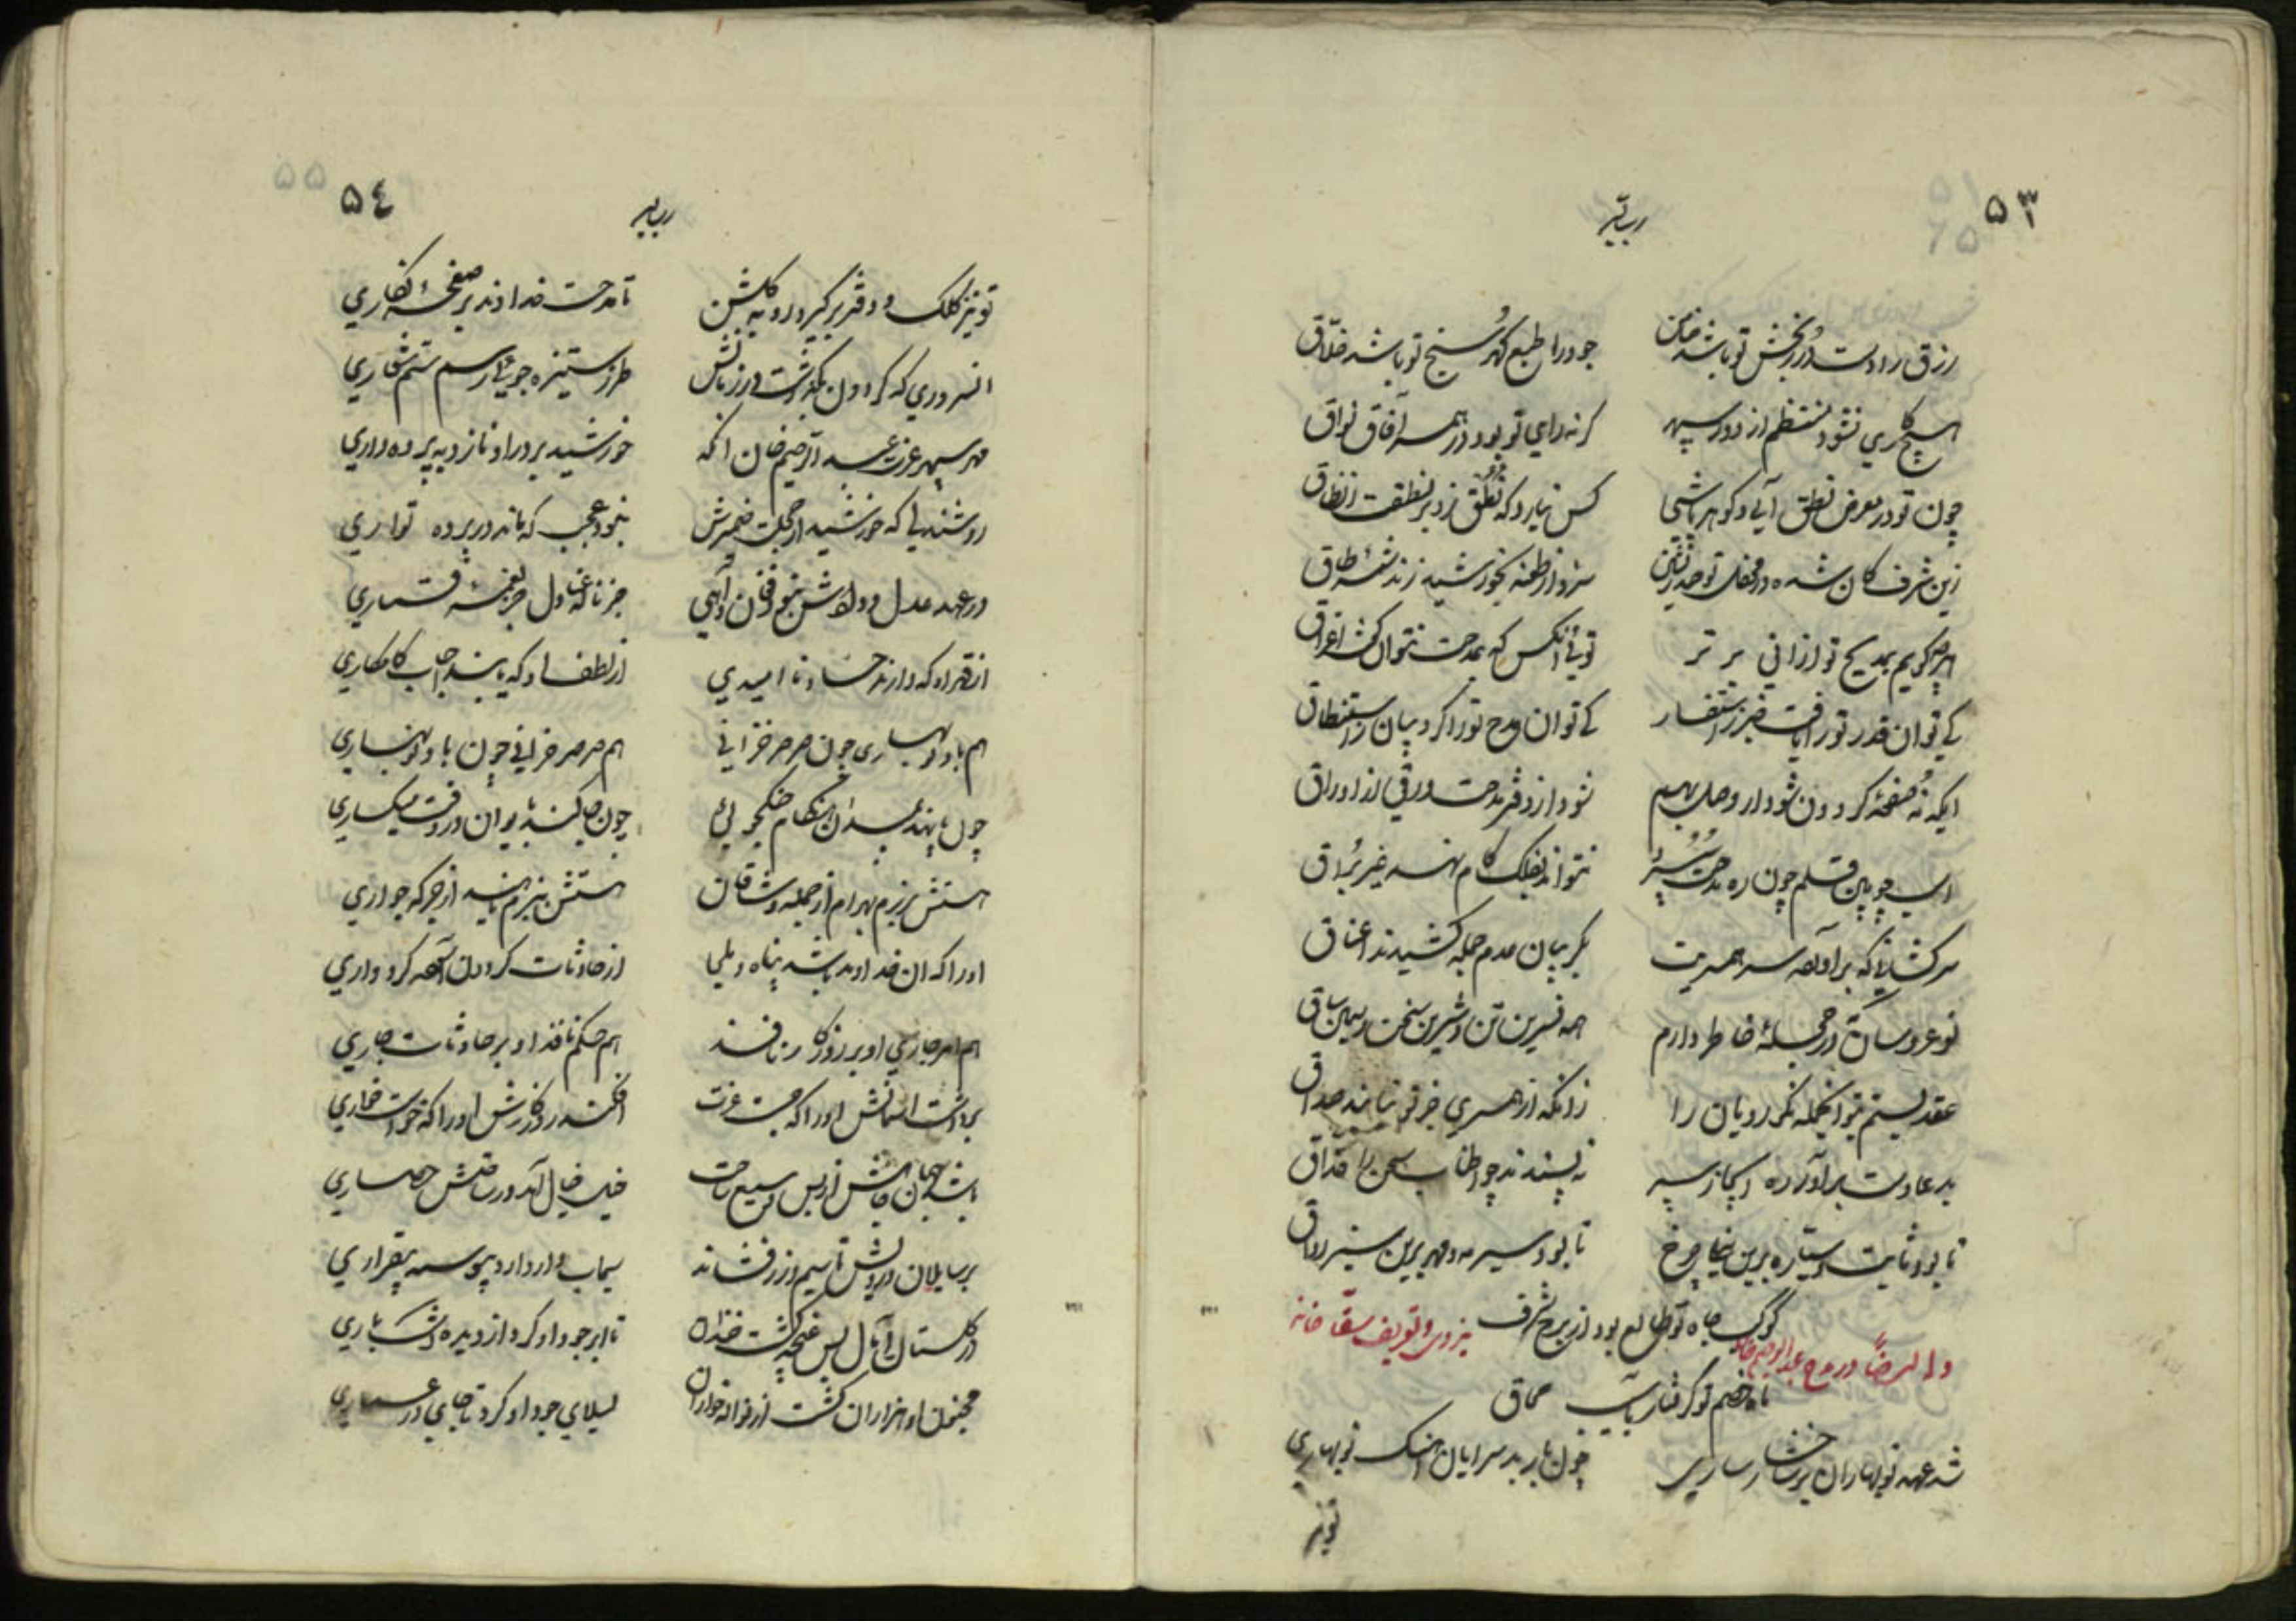 ۵۳
رزق را دست دُرر بخش تو باشد ضامن جود را طبع گهر سنج تو باشد خلاق
هیچ کاری نشود منتظم از دور سپهر گر نه رای تو بود در همه آفاق نواق
چون تو در معرض نطق آئی و گوهر پاشی کس نیارد که تنطق زند بر نطقت ز نطاق
زین شرف کان شده در محفل تو سزد ار طعنه بخورشید زند شمسه طاق
هرچه گویم بمدیح تو از آنی برتر توئی آنکس که بمدحت نتوان کرد اغراق
کی توان قدر تو را یافت خبیر ز استفسار کی توان مدح تو را کرد بیان ز استنطاق
ایکه نُه صفحهٔ گردون شود ار وصل بهم نشود از دفتر مدحت ورقی از اوراق
اسب چوبین قلم چون ره مدحت سپرد نتواند بفلک گام نهد غیر بُراق
سرکشانی که برآورده سر از همسریت بگریبان عدم جمله کشیدند اعناق
نو عروسان که در حجلهٔ خاطر دارم همه نسرین تن و شیرین سخن و سیمین ساق
عقد بستم بتو اینجمله نکو رویان را زانکه از همسری غیر تو صداق
بدعا دست برآور نپسندند چو اطناب سخن را حذاق
تا بود ثابت و سیاره برین نیلی چرخ تا بود سیر مه و مهر برین سبز رواق
کوکب جاه تو طالع بود از برج شرف
تا مه خصم تو گرفتار محاق
و له ایضاً در مدح عبدالرحیم خان یزدی و تعریف سقاخانه
شد عهد نوبهاران بر شاخسار ساری چون باربد سرایان آهنگ نوبهاری
تونیز
۵٤
تو نیز کلک و دفتر برگیر و رو به گلشن تا مدحت خداوند بر صفحهٔ نگاری
آنسروری که گردون بگذاشت در زمانش طرز ستیزه جوئی رسم ستم شعاری
مهر سپهر عزت عبدالرحیم خان آنکه خورشید بر در او نازد به پرده داری
روشندلی که خورشید از خجلت ضمیرش نبود عجب که ماند در پرده تواری
در عهد عدل و دادش نبود فغان و آهی جز نالهٔ عنادل جز نغمهٔ قماری
از قهر او که دارند حساد ناامیدی از لطف او که یابند احباب کامکاری
هم باد نوبهاری چون صرصر خزانی هم صرصر خزانی چون باد نوبهاری
چون پا نهد بمیدان هنگام جنگجوئی چون جا کند بایوان در وقت میگساری
هستش برزم بهرام از جمله وشاقان هستش ببزم ناهید از جرگه جواری
او را که آن خداوند باشد پناه و ملجا از حادثات گردون آسوده کرد و اری
هم امر جاری او بر روزگار نافذ هم حکم نافذ او بر حادثات جاری
برداشت آسمانش او را که جست عزت افکند روزگارش او را که خواست خواری
باشد جهان جاهش از بس وسیع ساحت خیل خیال آمد در ساحتش حصاری
بر سایلان درویش تا سیم و زر فشاند سیماب وار دارد پیوسته بیقراری
در گلستان آمال بس غنچه گشت خندان تا ابر جود او کرد از دیده اشکباری
مجنون او هزاران گشت از لیلای جود او کرد تا جای در عماری